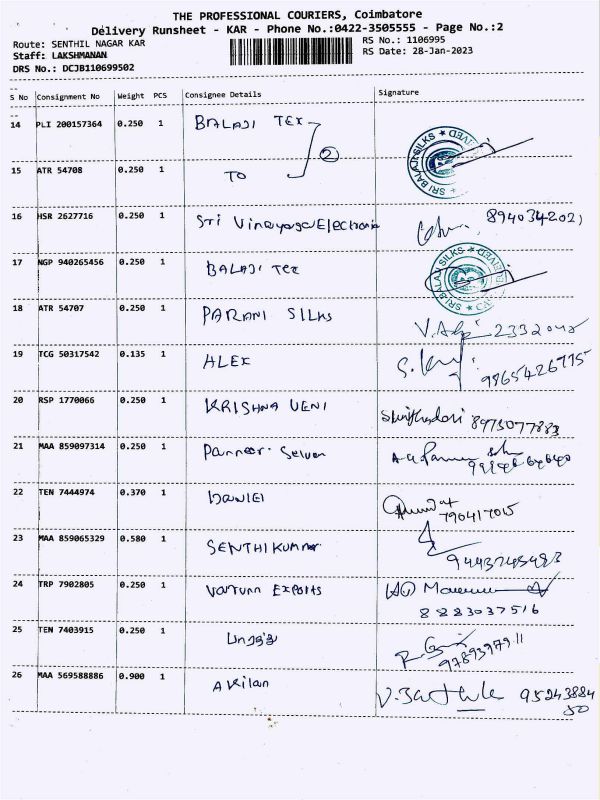 THE PROFESSIONAL COURIERS, Coimbatore
Delivery Runsheet - KAR - Phone No.:0422-3505555 - Page No.:2
Route: SENTHIL NAGAR KAR RS No.: 1106995
Staff: LAKSHMANAN RS Date: 28-Jan-2023
DRS No.: DCJB110699502
S No Consignment No Weight PCS Consignee Details Signature
14 PLI 200157364 0.250 1 BALAJI TEX
SRI BALAJI SILKS
15 ATR 54708 0.250 1 TO 2
16 HSR 2627716 0.250 1 STI Vinayaga Electronic 8940342021
17 NGP 940265456 0.250 1 BALAJI TEX
SRI BALAJI SILKS
18 ATR 54707 0.250 1 PARANI SILKS
19 TCG 50317542 0.135 1 ALEX
9965426775
20 RSP 1770066 0.250 1 KRISHNA VENI
8973077883
21 MAA 859097314 0.250 1 Panneer Selven
22 TEN 7444974 0.370 1 DANIEL
790417015
23 MAA 859065329 0.580 1 SENTHIKUMAR
24 TRP 7902805 0.250 1 Varunn Exports
8883037516
25 TEN 7403915 0.250 1
26 MAA 569588886 0.900 1 Akilan 95243884
50